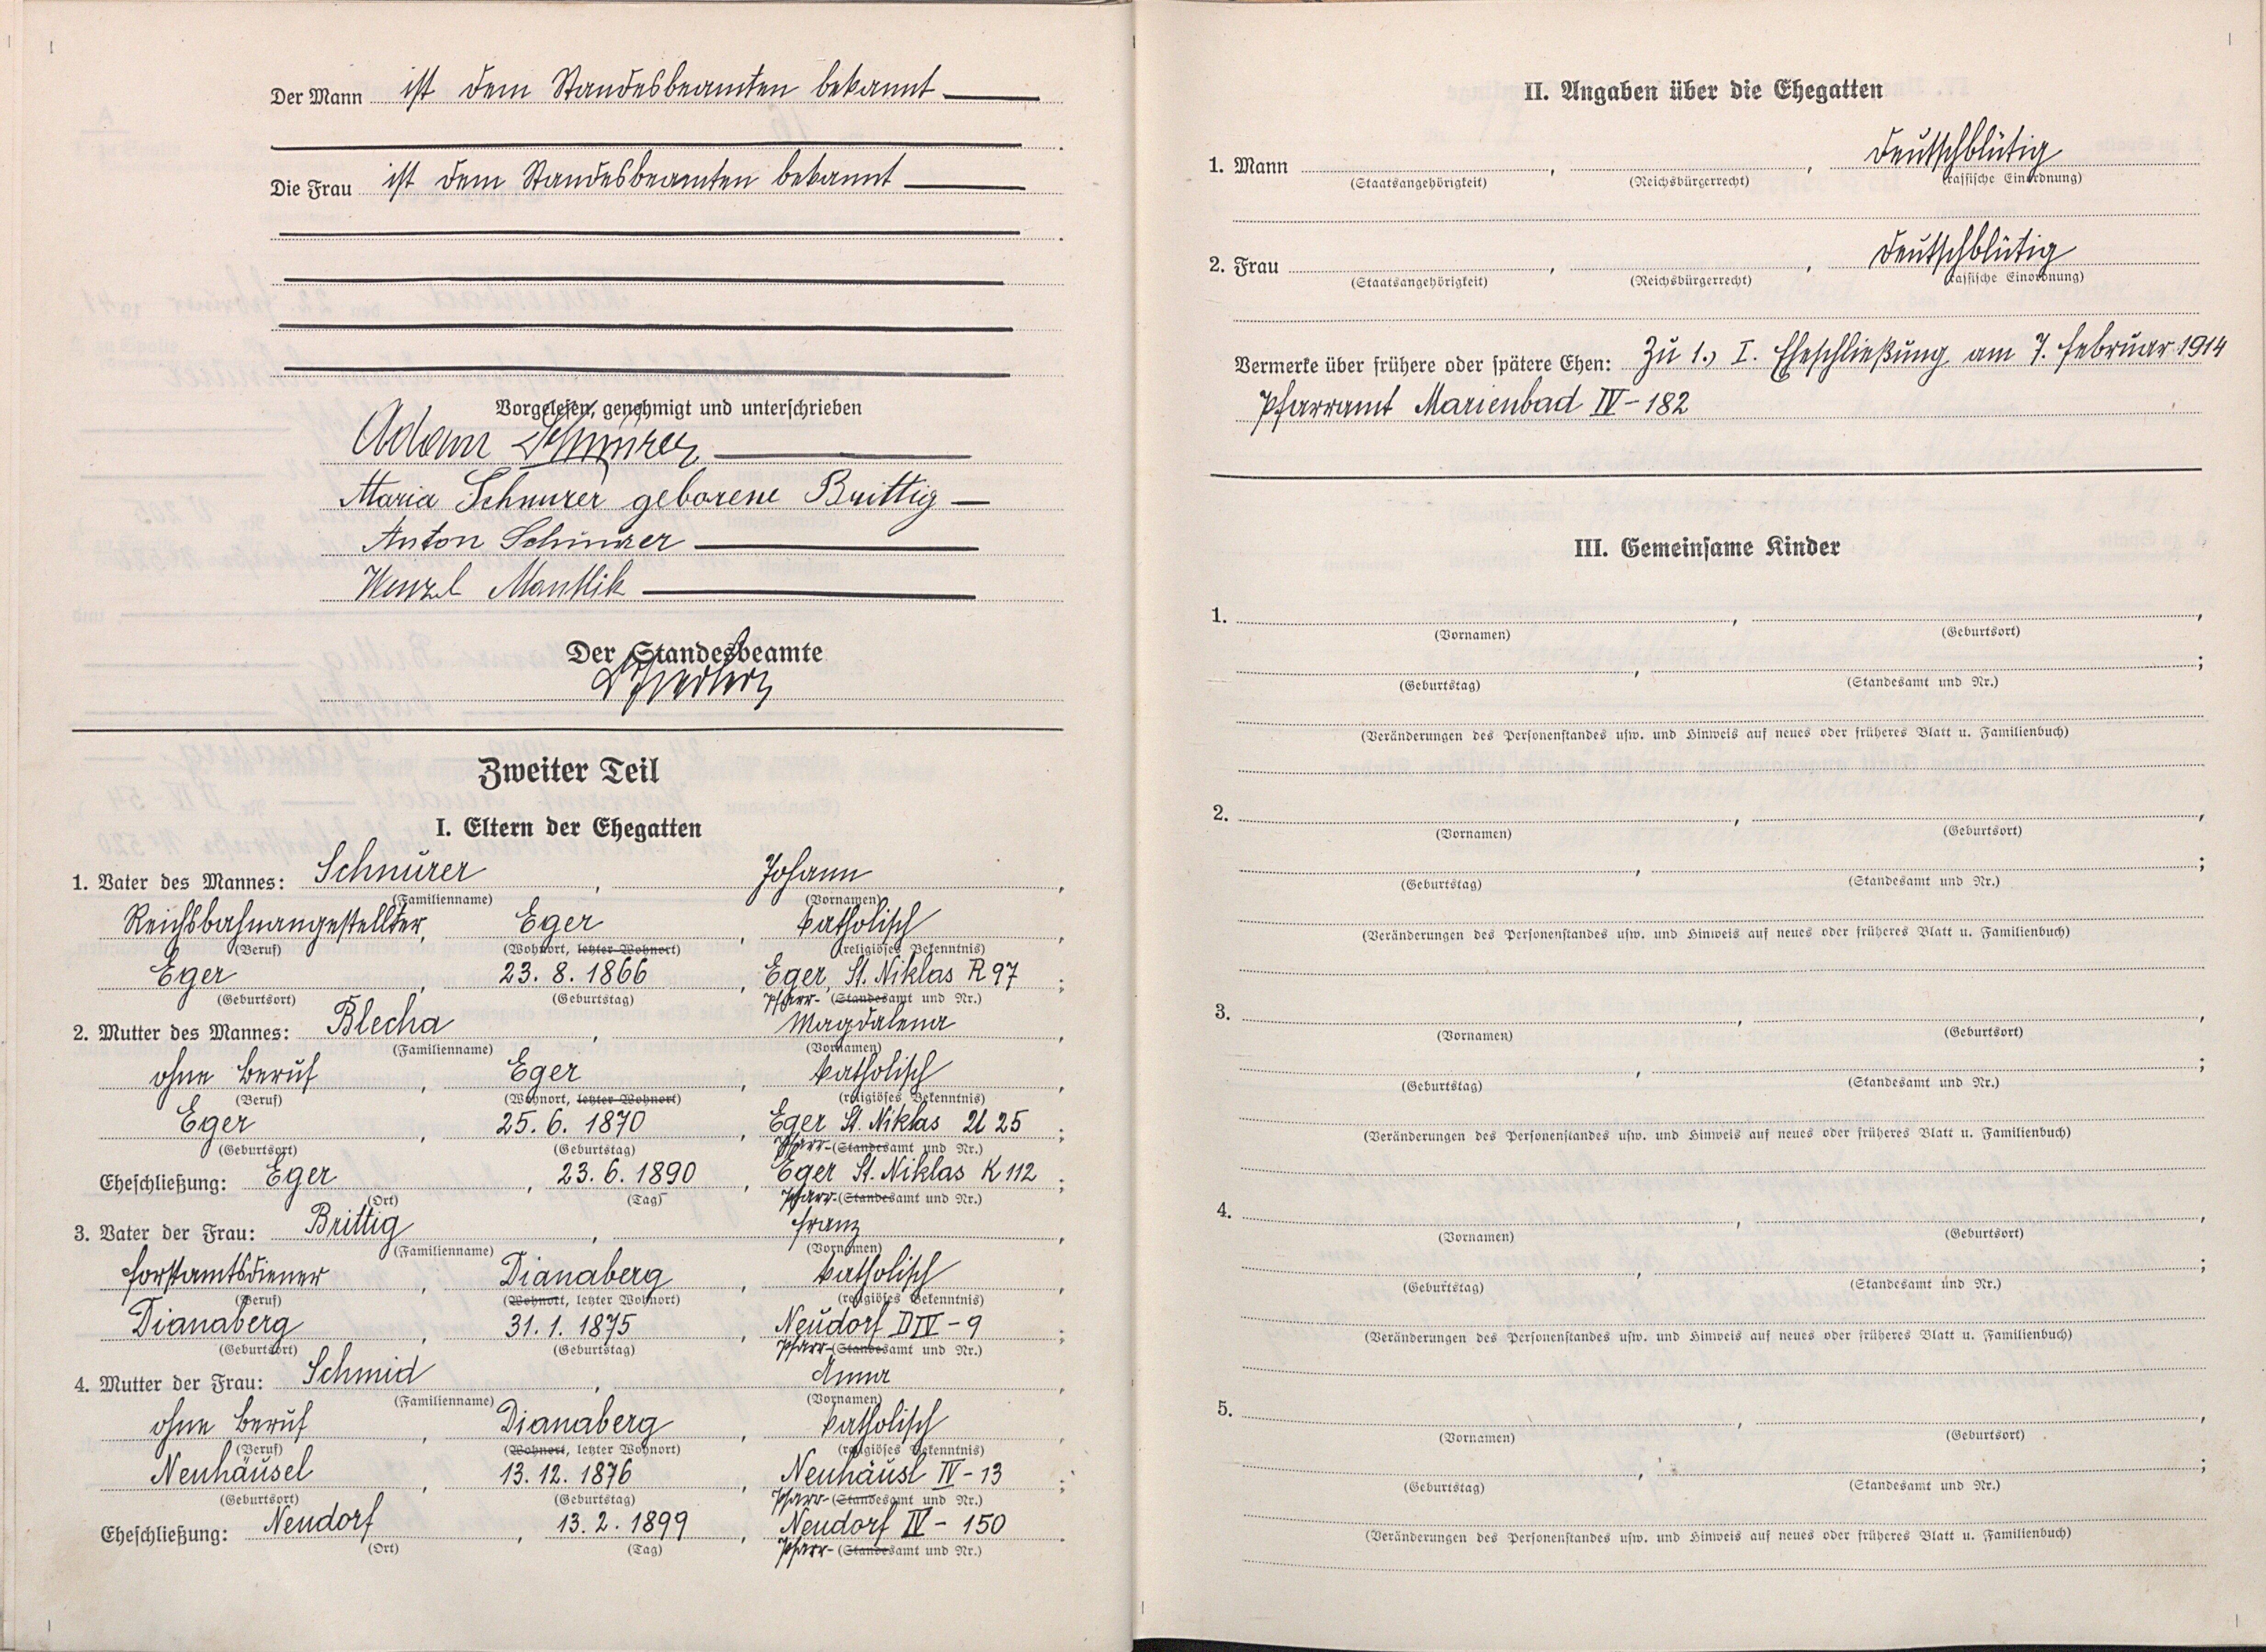 Der Mann ist dem Standesbeamten bekannt
Die Frau ist dem Standesbeamten bekannt
Vorgelesen, genehmigt und unterschrieben
Adam Schnürer
Maria Schnurer geborene Brittig
Anton Schnürer
Wenzl Mantlik
Der Standesbeamte
Zweiter Teil
I. Eltern der Ehegatten
1. Vater des Mannes: Schnürer, Johann,
(Familienname) (Vornamen)
Reichsbahnangestellter, Eger, katholisch,
(Beruf) (Wohnort, letzter Wohnort) (religiöses Bekenntnis)
Eger, 23. 8. 1866, Eger, St. Niklas R 97;
(Geburtsort) (Geburtstag) Pfarr- (Standesamt und Nr.)
2. Mutter des Mannes: Blecha, Magdalena,
(Familienname) (Vornamen)
ohne Beruf, Eger, katholisch,
(Beruf) (Wohnort, letzter Wohnort) (religiöses Bekenntnis)
Eger, 25. 6. 1870, Eger St. Niklas U 25;
(Geburtsort) (Geburtstag) Pfarr- (Standesamt und Nr.)
Eheschließung: Eger, 23. 6. 1890, Eger St. Niklas K 112;
(Ort) (Tag) Pfarr- (Standesamt und Nr.)
3. Vater der Frau: Brittig, Franz,
(Familienname) (Vornamen)
Forstamtsdiener, Dianaberg, katholisch,
(Beruf) (Wohnort, letzter Wohnort) (religiöses Bekenntnis)
Dianaberg, 31. 1. 1875, Neudorf D IV - 9;
(Geburtsort) (Geburtstag) Pfarr- (Standesamt und Nr.)
4. Mutter der Frau: Schmid, Anna,
(Familienname) (Vornamen)
ohne Beruf, Dianaberg, katholisch,
(Beruf) (Wohnort, letzter Wohnort) (religiöses Bekenntnis)
Neuhäusel, 13. 12. 1876, Neuhäusl IV - 13;
(Geburtsort) (Geburtstag) Pfarr- (Standesamt und Nr.)
Eheschließung: Neudorf, 13. 2. 1899, Neudorf IV - 150.
(Ort) (Tag) Pfarr- (Standesamt und Nr.)
II. Angaben über die Ehegatten
1. Mann , , deutschblütig
(Staatsangehörigkeit) (Reichsbürgerrecht) (rassische Einordnung)
2. Frau , , deutschblütig
(Staatsangehörigkeit) (Reichsbürgerrecht) (rassische Einordnung)
Vermerke über frühere oder spätere Ehen: Zu 1., I. Eheschließung am 7. Februar 1914
Pfarramt Marienbad IV - 182
III. Gemeinsame Kinder
1. , ,
(Vornamen) (Geburtsort)
, ;
(Geburtstag) (Standesamt und Nr.)
(Veränderungen des Personenstandes usw. und Hinweis auf neues oder früheres Blatt u. Familienbuch)
2. , ,
(Vornamen) (Geburtsort)
, ;
(Geburtstag) (Standesamt und Nr.)
(Veränderungen des Personenstandes usw. und Hinweis auf neues oder früheres Blatt u. Familienbuch)
3. , ,
(Vornamen) (Geburtsort)
, ;
(Geburtstag) (Standesamt und Nr.)
(Veränderungen des Personenstandes usw. und Hinweis auf neues oder früheres Blatt u. Familienbuch)
4. , ,
(Vornamen) (Geburtsort)
, ;
(Geburtstag) (Standesamt und Nr.)
(Veränderungen des Personenstandes usw. und Hinweis auf neues oder früheres Blatt u. Familienbuch)
5. , ,
(Vornamen) (Geburtsort)
, ;
(Geburtstag) (Standesamt und Nr.)
(Veränderungen des Personenstandes usw. und Hinweis auf neues oder früheres Blatt u. Familienbuch)